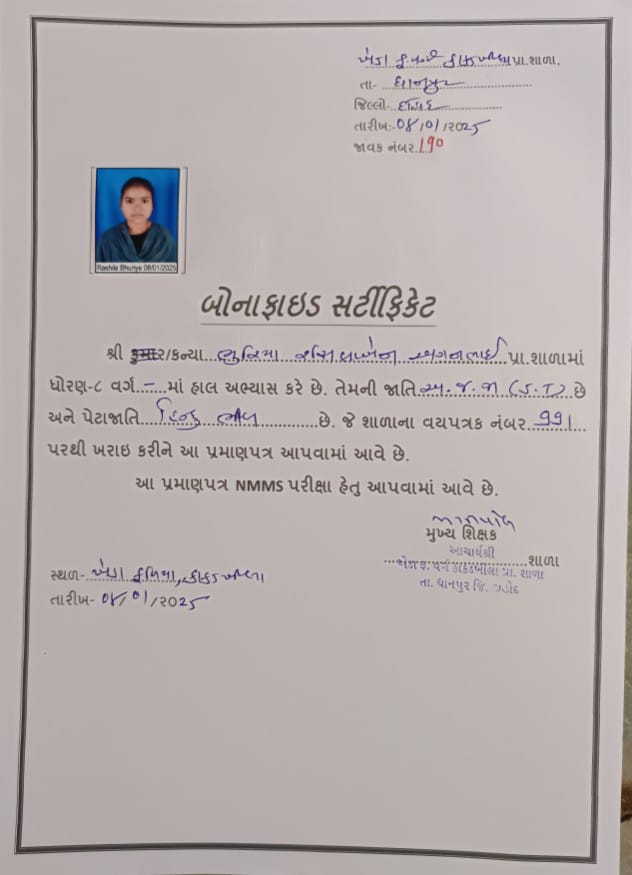 પ્રા.શાળા.
તા- ધાનપુર
જિલ્લો- દાહોદ
તારીખ:- 08/01/2025
જાવક નંબર 190
Rashila Bhuriya 08/01/2025
બોનાફાઇડ સર્ટીફિકેટ
શ્રી કુમાર/કન્યા ભુરિયા રશિલાબેન છગનભાઈ પ્રા.શાળામાં
ધોરણ-૮ વર્ગ - માં હાલ અભ્યાસ કરે છે. તેમની જાતિ અ.જ.જા (S.T) છે
અને પેટાજાતિ હિન્દુ ભીલ છે. જે શાળાના વયપત્રક નંબર 991
પરથી ખરાઇ કરીને આ પ્રમાણપત્ર આપવામાં આવે છે.
આ પ્રમાણપત્ર NMMS પરીક્ષા હેતુ આપવામાં આવે છે.
મુખ્ય શિક્ષક
આચાર્યશ્રી
શાળા
વર્ગ કાકડખીલા પ્રા. શાળા
તા. ધાનપુર જિ. દાહોદ
સ્થળ- ખેડા ફળિયા, કાકડખીલા
તારીખ- 08/01/૨૦25